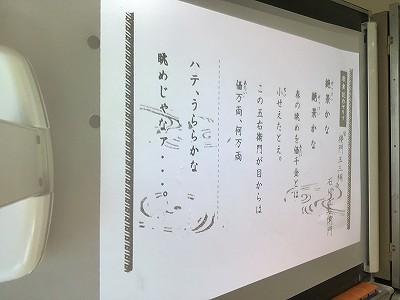 絶景かな
絶景かな
春の眺めを値千金とは
小せえたとえ。
この五右衛門が目からは
値万両、何万両
ハテ、うららかな
眺めじゃなァ・・・。